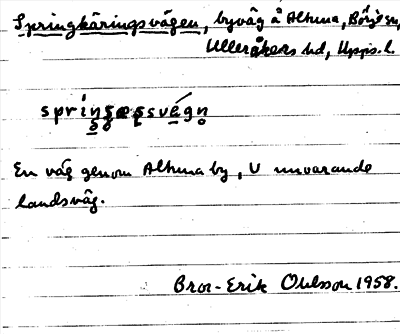 Springkäringsvägen, byväg å Altuna, Börje sn,
Ulleråkers hd, Upps. l.
En väg genom Altuna by, V nuvarande
landsväg.
Bror-Erik Ohlsson 1958.